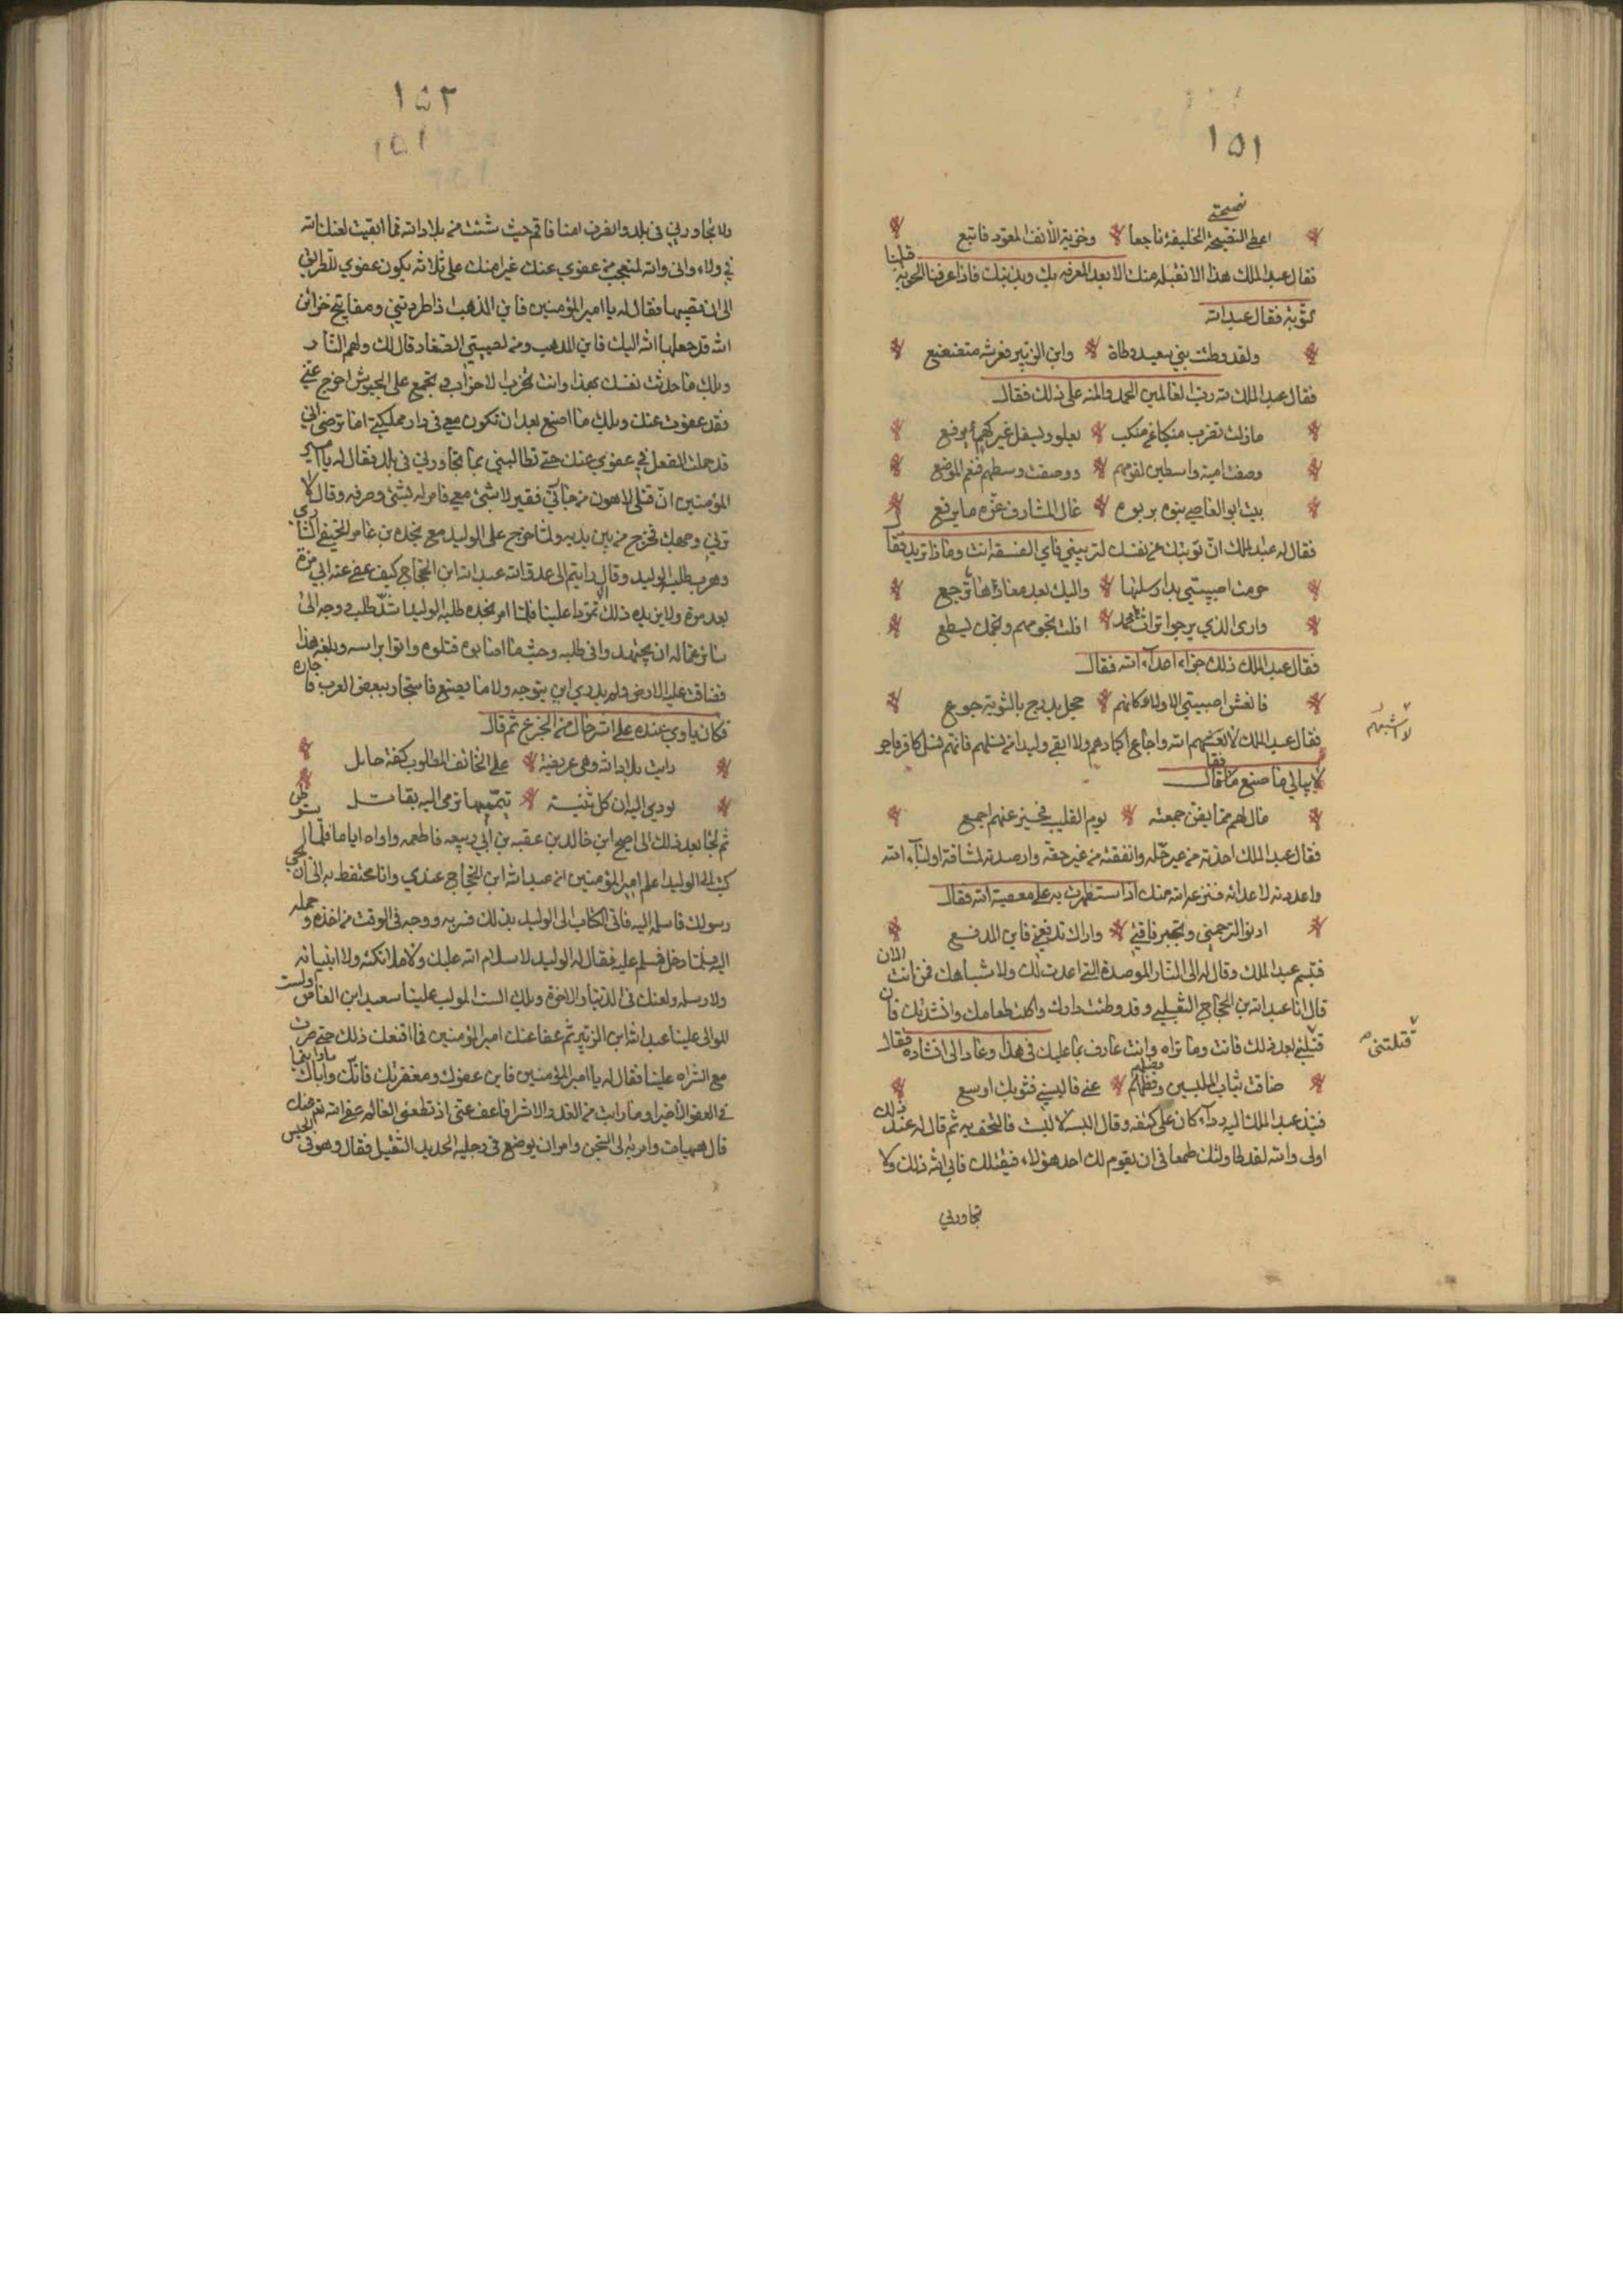 ١٥١
نصيحتي
اعطى النصيحة الخليفة ناجعا وخزيمة الأنف المقود فاتبع
فقال عبد الملك هذا الا نقبله منك الا بعد المعرفه بك وبذنبك فاذا عرفنا الحوبة قبلنا
التوبة فقال عبد الله
ولقد وطئت بني سعيد وطاة وابن الزبير فعرشه متضعضع
فقال عبد الملك لله رب العالمين الحمد والمنه على ذلك فقال
مازلت تضرب منكبا عن منكب يعلو ويسفل غيركم ما يرفع
وصفت امية واسطين لقومهم ووصفت وسطهم فنعم الموضع
بيت ابو العاصي بنوه بربوه عال المشارف عزه ما يرفع
فقال له عبد الملك انّ توبتك عن نفسك لتريبني فاي الفسقه انت وماذا تريد فقال
حرمت اصيبيتي يد ارسلتها واليك بعد معادها ترجع
وارى الذي يرجوا تراث محمد افلت نجومهم ونجمك يسطع
فقال عبد الملك ذلك جزاء اعداء الله فقال
فانعش اصيبيتي الاولاء كانهم حجل يدرج بالشوية جوع
فقال عبد الملك لا انعشهم الله واجاع اكبادهم ولا ابقى وليدا من نسلهم فانهم نسل كافر فاجر
لا يبالي ما صنع فقال
لا اشبعهم
مال لهم مما يضن جمعته يوم القليب فحيز عنهم اجمع
فقال عبد الملك اخذته من غير حله وانفقته من غير حقه وارصدته لمشاقة اولياء الله
واعددته لاعدائه فنزعه الله منك اذ استظهرت به على معصية الله فقال
ادنو الترحمني وتجبر فاقتي واراك تدفعني فاين المدفع
فتبسم عبد الملك وقال له الى النار الموصدة التي اعدت لك ولاشباهك فمن انت الان
قال انا عبد الله بن الحجاج الثعلبي وقد وطئت دارك واكلت طعامك وانشدتك فان
قتلتني بعد ذلك فانت وما تراه وانت عارف بما عليك في هذا وعاد الى انشاده فقال
قتلتني صح
ضاقت ثياب الملبسين وفضلهم عني فالبسني فثوبك اوسع
فنبذ عبد الملك اليه رداء كان على كتفه وقال البسه لا لبست فالتحف به ثم قال له عبد الملك
اولى والله لقد طاولتك طمعا في ان يقوم لك احد هؤلاء فيقتلك فابى الله ذلك ولا
تجاورني
١٥٢
١٥١
ولا تجاورني في بلد وانصرف امنا فاقم حيث شئت من بلاد الله فما ابقيت لعنك الله
في ولاء واني والله لمتعجب من عفوي عنك غير امنك على ثلاثة يكون عفوي
فقال له يا امير المؤمنين فاين الذهب اذا طردتني ومفاتيح خزائن
الله قد جعلها الله اليك فاين المذهب ومن لصبيتي الصغار قال لك ولهم النار
ويلك ما حدثت نفسك بهذا وانت تحزب الاحزاب وتجمع على الجيوش اخرج عني
فقد عفوت عنك ويلك ما اصنع بعد ان تكون معي في دار مملكتي اما ترضى اني
قد حملت الفعل في عفوي عنك حتى تطالبني بما تجاورني في بلد فقال له يا امير
المؤمنين انّ قتلى لاهون من حياتي فقير لا شيئ معي فامر له بشيئ وصرفه وقال لا
تريني وجهك فخرج من بين يديه ولما خرج على الوليد مع نجده بن عامر الحنيفي الشاري
وهرب طلبه الوليد وقال رايتم الى عدو الله عبد الله ابن الحجاج كيف عفى عنه ابي مرة
بعد مرة ولا يزيده ذلك الا تمردا علينا فلما امر نجده طلبه الوليد اشدّ طلب ووجه الى
سائر عماله ان يجتهدوا في طلبه وحيث ما اصابوه قتلوه واتوا براسه وبلغه هذا
فضاقت عليه الارض ولم يدري اين يتوجه ولا ما يصنع فاستجار ببعض العرب فاجاره
فكان ياوي عنده على اشر حال من الجزع ثم قال
رايت بلاد الله وهي عريضة على الخائف المطلوب كفة حابل
يودي اليه ان كل ثنية تيممها ترمى اليه بقاتل
ثم لجا بعد ذلك الى اصبح ابن خالد بن عقبه بن ابي ربيعه فاطعمه واواه اياما فلما
كتب الى الوليد اعلم امير المؤمنين انه عبد الله ابن الحجاج عندي وانا محتفظ به الى ان يجي
رسولك فاسلمه اليه فاتى الكتاب الى الوليد بذلك فسر به ووجه في الوقت من اخذه وحمله
اليه فلما دخل فسلم عليه فقال له الوليد لا سلام الله عليك ولا ملائكته ولا انبيائه
ولا رسله ولعنك في الدنيا والاخرة ويلك الست المولب علينا سعيد ابن العاص ولست
الموالي علينا عبد الله ابن الزبير ثم عفا عنك امير المؤمنين فما اقنعك ذلك حتى صرت
مع الشراه علينا فقال له يا امير المؤمنين فاين عفوك ومغفرتك فانك واباك
في العفو
قال هيهات وامر به الى السجن وامر ان يوضع في رجليه الحديد الثقيل فقال وهو في الحبس